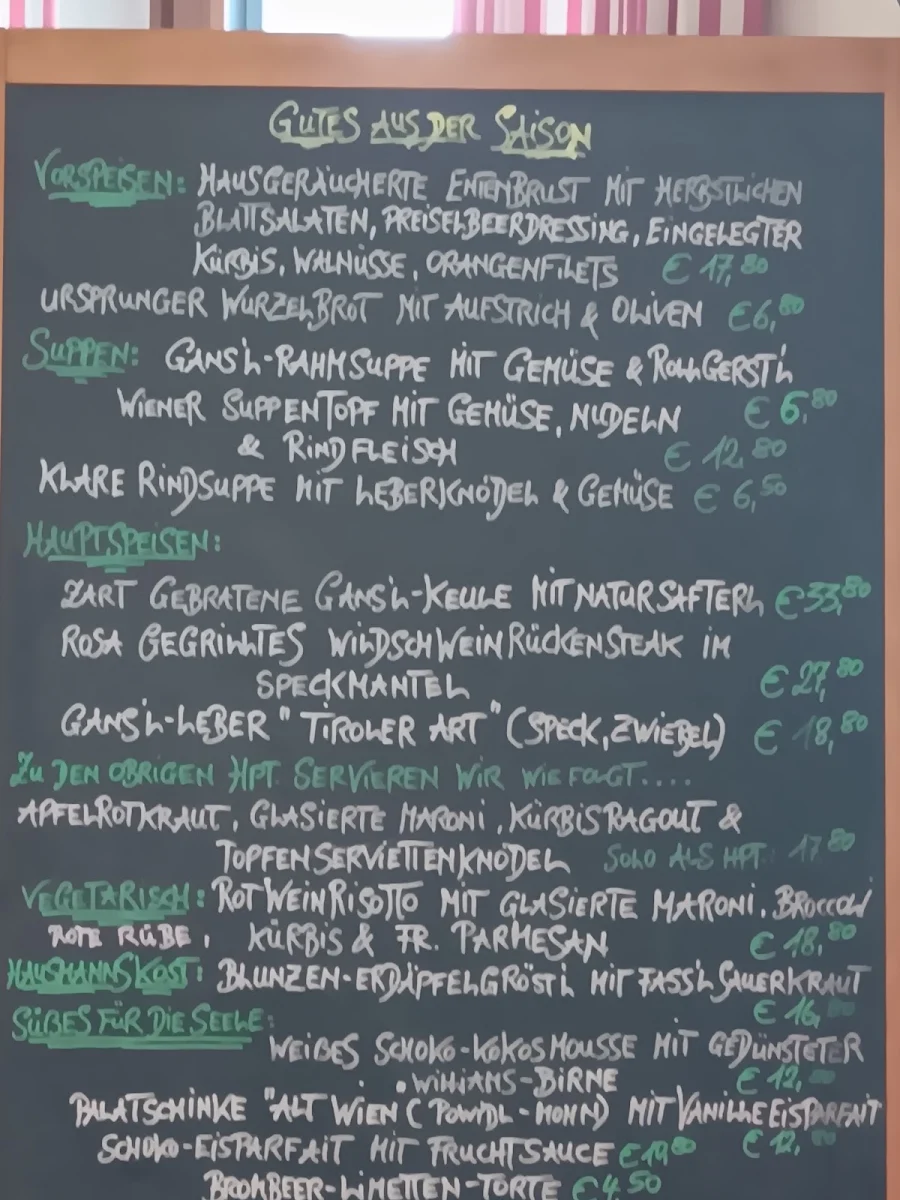 GUTES AUS DER SAISON
VORSPEISEN: HAUSGERÄUCHERTE ENTENBRUST MIT HERBSTLICHEN
BLATTSALATEN, PREISELBEERDRESSING, EINGELEGTER
KÜRBIS, WALNÜSSE, ORANGENFILETS € 17,80
URSPRUNGER WURZELBROT MIT AUFSTRICH & OLIVEN €6,80
SUPPEN: GANS'L-RAHMSUPPE MIT GEMÜSE & ROLLGERST'L
WIENER SUPPENTOPF MIT GEMÜSE, NUDELN € 6,80
& RINDFLEISCH € 12,80
KLARE RINDSUPPE MIT LEBERKNÖDEL & GEMÜSE € 6,50
HAUPTSPEISEN:
ZART GEBRATENE GANS'L-KEULE MIT NATURSAFTERL €33,80
ROSA GEGRILLTES WILDSCHWEINRÜCKENSTEAK IM
SPECKMANTEL € 27,80
GANS'L-LEBER "TIROLER ART" (SPECK, ZWIEBEL) € 18,80
ZU DEN OBRIGEN HPT. SERVIEREN WIR WIE FOLGT....
APFELROTKRAUT, GLASIERTE MARONI, KÜRBISRAGOUT &
TOPFENSERVIETTENKNÖDEL SOLO ALS HPT: 17,80
VEGETARISCH: ROTWEINRISOTTO MIT GLASIERTE MARONI, BROCCOLI
ROTE RÜBE, KÜRBIS & FR. PARMESAN € 18,80
HAUSMANNSKOST: BLUNZEN-ERDÄPFELGRÖST'L MIT FASS'L SAUERKRAUT
€ 16,
SÜẞES FÜR DIE SEELE:
WEIẞES SCHOKO-KOKOSMOUSSE MIT GEDÜNSTETER
WILLIAMS-BIRNE € 12,
PALATSCHINKE "ALT WIEN (POWIDL-MOHN) MIT VANILLEEISPARFAIT
SCHOKO-EISPARFAIT MIT FRUCHTSAUCE € 12,
BROMBEER-LIMETTEN-TORTE € 4,50